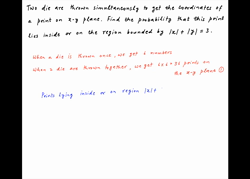 Two die are thrown simultaneously to get the coordinates of
a point on x-y plane. Find the probability that this point
lies inside or on the region bounded by |x| + |y| = 3.
When a die is thrown once, we get 6 numbers
When 2 die are thrown together, we get 6x6 = 36 points on
the x-y plane ①
Points lying inside or on region |x| +